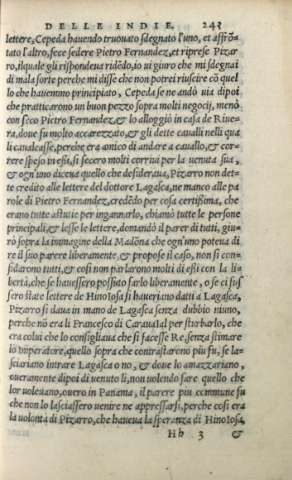 DELLE INDIE. 243
lettere, Cepeda hauendo truouato sdegnato l'uno, et affrõ-
tato l'altro, fece sedere Pietro Fernandez, et riprese Pizar
ro, ilquale gli rispondeua ridẽdo, io ui giuro che mi sdegnai
di mala sorte perche mi disse che non potrei riuscire cõ quel
lo che hauemmo principiato, Cepeda se ne andò uia dipoi
che pratticarono un buon pezzo sopra molti negocij, menò
con seco Pietro Fernandez, & lo alloggiò in casa de Riue-
ra, doue fu molto accarezzato, & gli dette caualli nelli qua
li caualcasse, perche era amico di andare a cauallo, & cor-
rere spesso in essi, si fecero molti corrui per la uenuta sua,
& ogn'uno diceua quello che desideraua, Pizarro non det-
te credito alle lettere del dottore Lagasca, ne manco alle pa
role di Pietro Fernandez, credẽdo per cosa certissima, che
erano tutte astutie per ingannarlo, chiamò tutte le persone
principali, & lesse le lettere, domandò il parer di tutti, giu-
rò sopra la immagine della Madõna che ogn'uno poteua di
re il suo parere liberamente, & propose il caso, non si con-
fidarono tutti, & cosi non parlarono molti di essi con la li-
bertà, che se hauessero possuto farlo liberamente, o se ci fus
sero state lettere de Hinoiosa si haueriano datti a Lagasca,
Pizarro si daua in mano de Lagasca senza dubbio niuno,
perche nõ era li Francesco di Carauaial per sturbarlo, che
era colui che lo consigliaua che si facesse Re, senza stimare
lo Imperatore, quello sopra che contrastarono piu fu, se la-
sciariano intrare Lagasca o no, & doue lo amazzariano,
oueramente dipoi di uenuto li, non uolendo fare quello che
lor uoleuano, ouero in Panama, il parere piu commune fu
che non lo lasciassero uenire ne appressarsi, perche cosi era
la uolontà di Pizarro, che haueua la speranza di Hinoiosa,
Hh 3 &